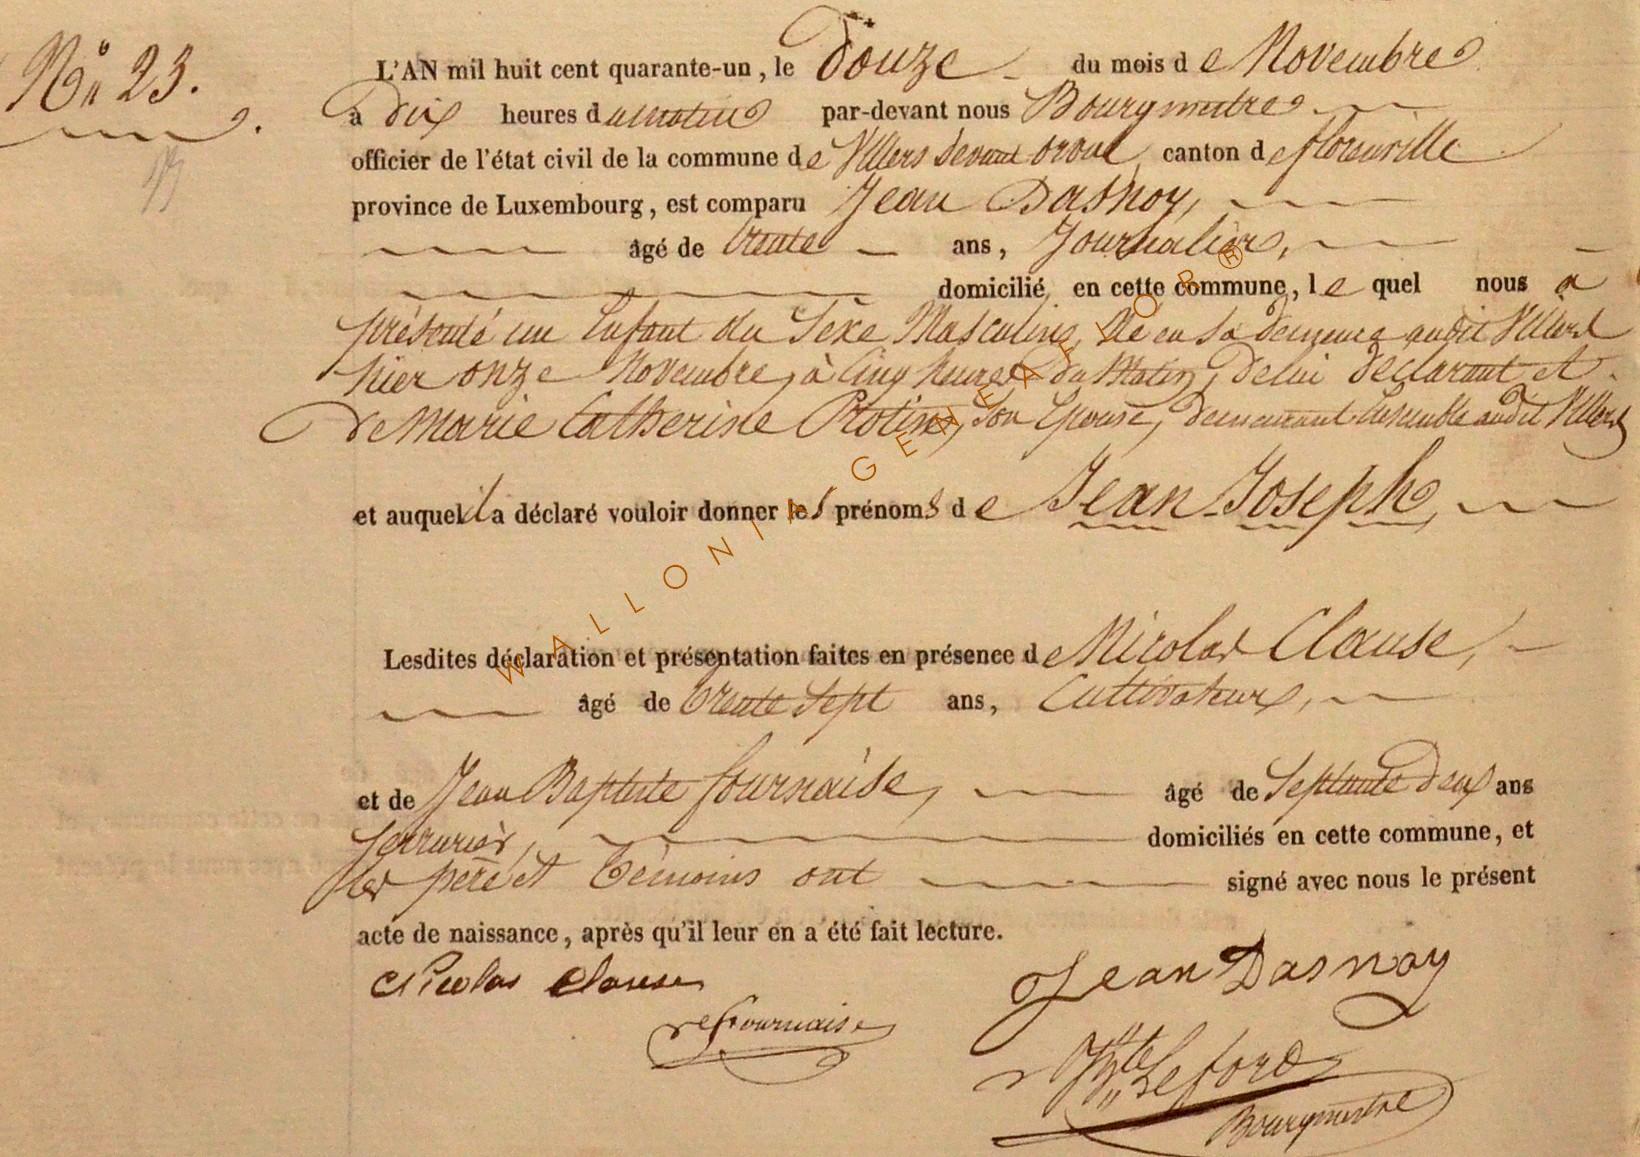 No 23.
L'AN mil huit cent quarante-un, le Douze du mois de Novembre
à Dix heures du matin par-devant nous Bourgmestre
officier de l'état civil de la commune de Villers devant orval, canton de florenville
province de Luxembourg, est comparu Jean Dasnoy,
âgé de trente ans, Journalier,
domicilié, en cette commune, le quel nous a
présenté un Enfant du Sexe Masculin, Né en sa demeure audit Villers
hier onze Novembre, à Cinq heures du Matin, de lui déclarant et
de Marie Catherine Protin, son Epouse, demeurant Ensemble audit Villers
et auquel il a déclaré vouloir donner les prénoms de Jean-Joseph,
Lesdites déclaration et présentation faites en présence de Nicolas Clause,
âgé de trente sept ans, Cultivateur,
et de Jean Baptiste fournaise, âgé de Septante deux ans
serrurier, domiciliés en cette commune, et
les père et témoins ont signé avec nous le présent
acte de naissance, après qu'il leur en a été fait lecture.
Nicolas Clause Jean Dasnoy
fournaise
Bourgmestre
WALLONIA GENEAFLOR ®